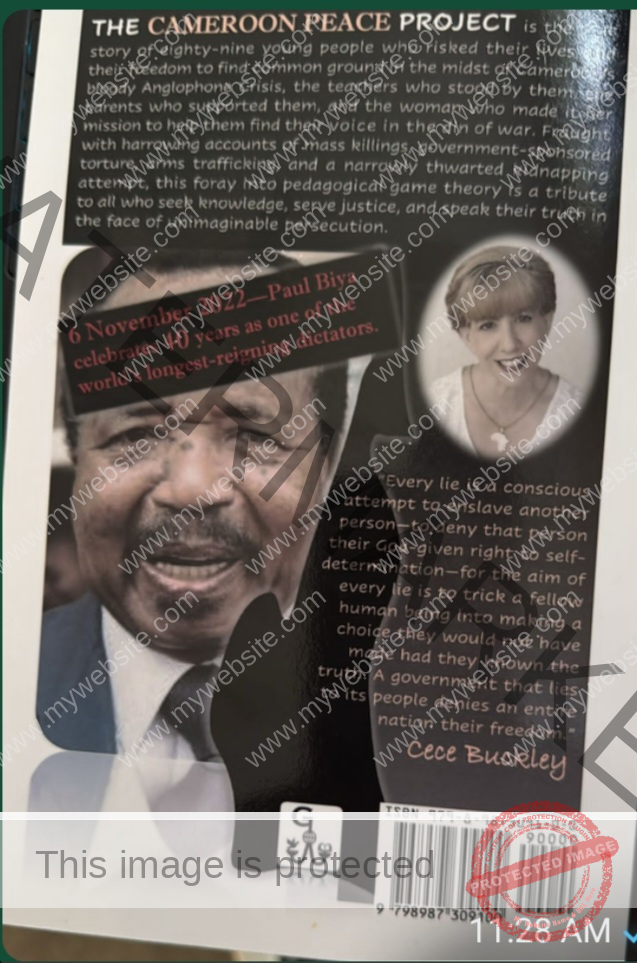 THE CAMEROON PEACE PROJECT is the
story of eighty-nine young people who risked their lives
their freedom to find common ground in the midst of Cameroon's
bloody Anglophone Crisis, the teachers who stood by them, the
parents who supported them, and the woman who made it her
mission to help them find their voice in the din of war. Fraught
with harrowing accounts of mass killings, government-sponsored
torture, arms trafficking, and a narrowly thwarted kidnapping
attempt, this foray into pedagogical game theory is a tribute
to all who seek knowledge, serve justice, and speak their truth in
the face of unimaginable persecution.
6 November 2022—Paul Biya
celebrates 40 years as one of the
world's longest-reigning dictators.
"Every lie is a conscious
attempt to enslave another
person—to deny that person
their God-given right to self-
determination—for the aim of
every lie is to trick a fellow
human being into making a
choice they would not have
made had they known the
truth. A government that lies
to its people denies an entire
nation their freedom."
Cece Buckley
G
ISBN
90000
9 798987 309100
This image is protected
COPY PROTECTION
PROTECTED IMAGE
11:28 AM
WATERMARKED
www.mywebsite.com